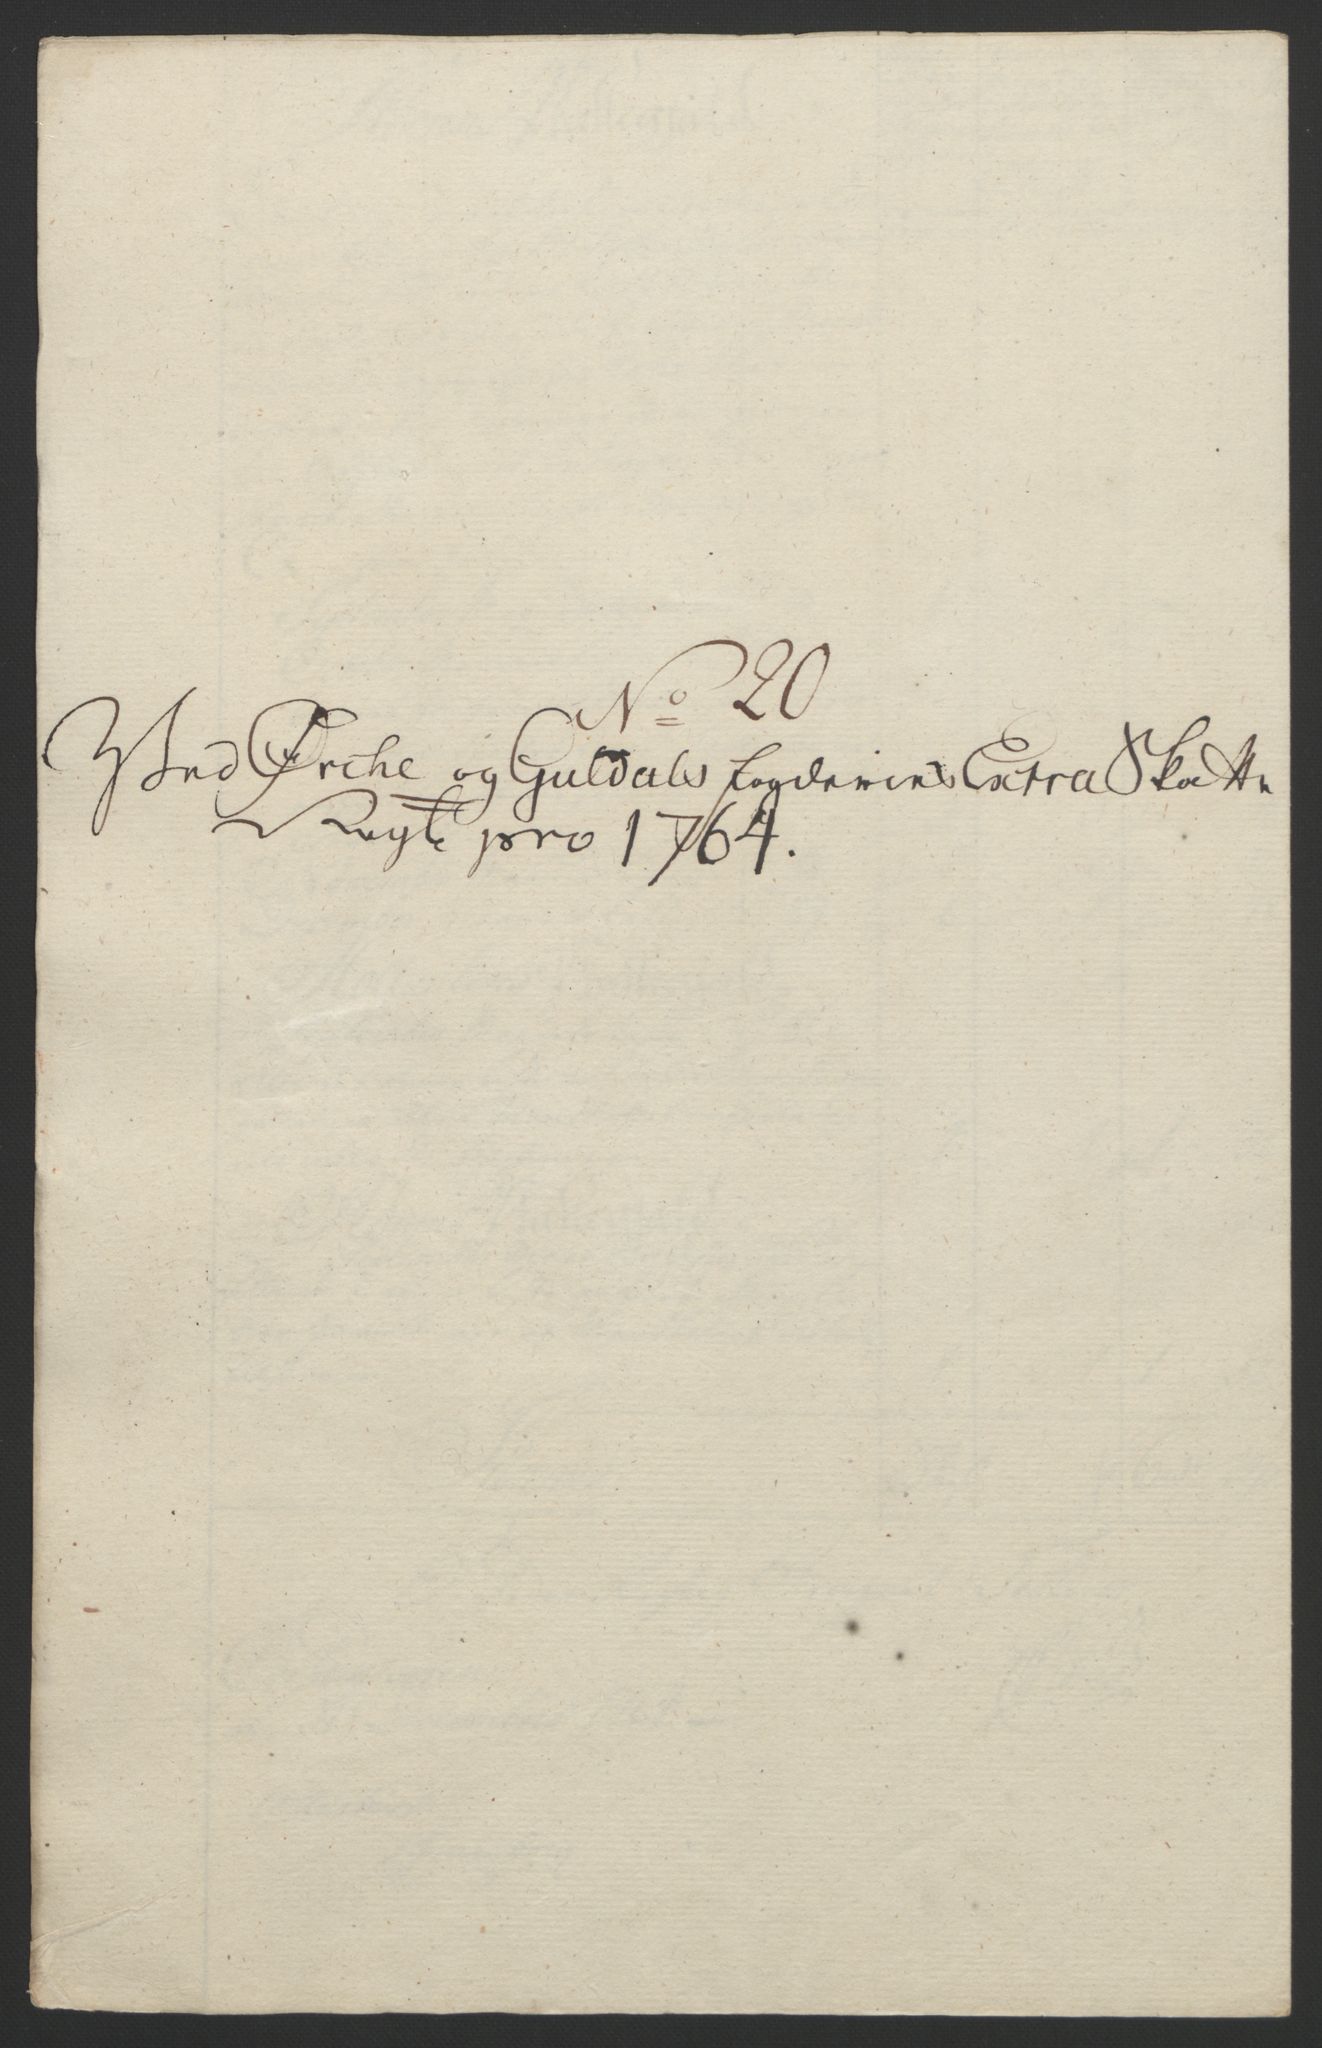 No 20
Ved Ørche og Guldals fogderies Extra Skatte
Regsk pro 1764.